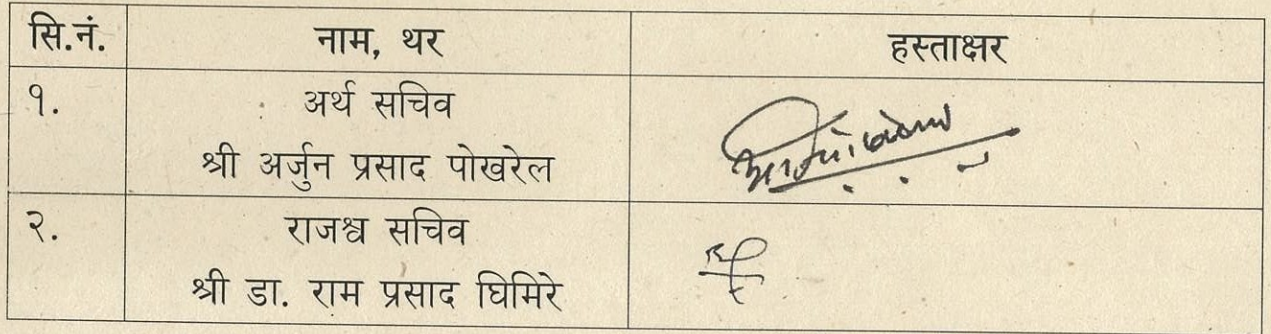 सि.नं. नाम, थर हस्ताक्षर
१. अर्थ सचिव
श्री अर्जुन प्रसाद पोखरेल
२. राजश्व सचिव
श्री डा. राम प्रसाद घिमिरे